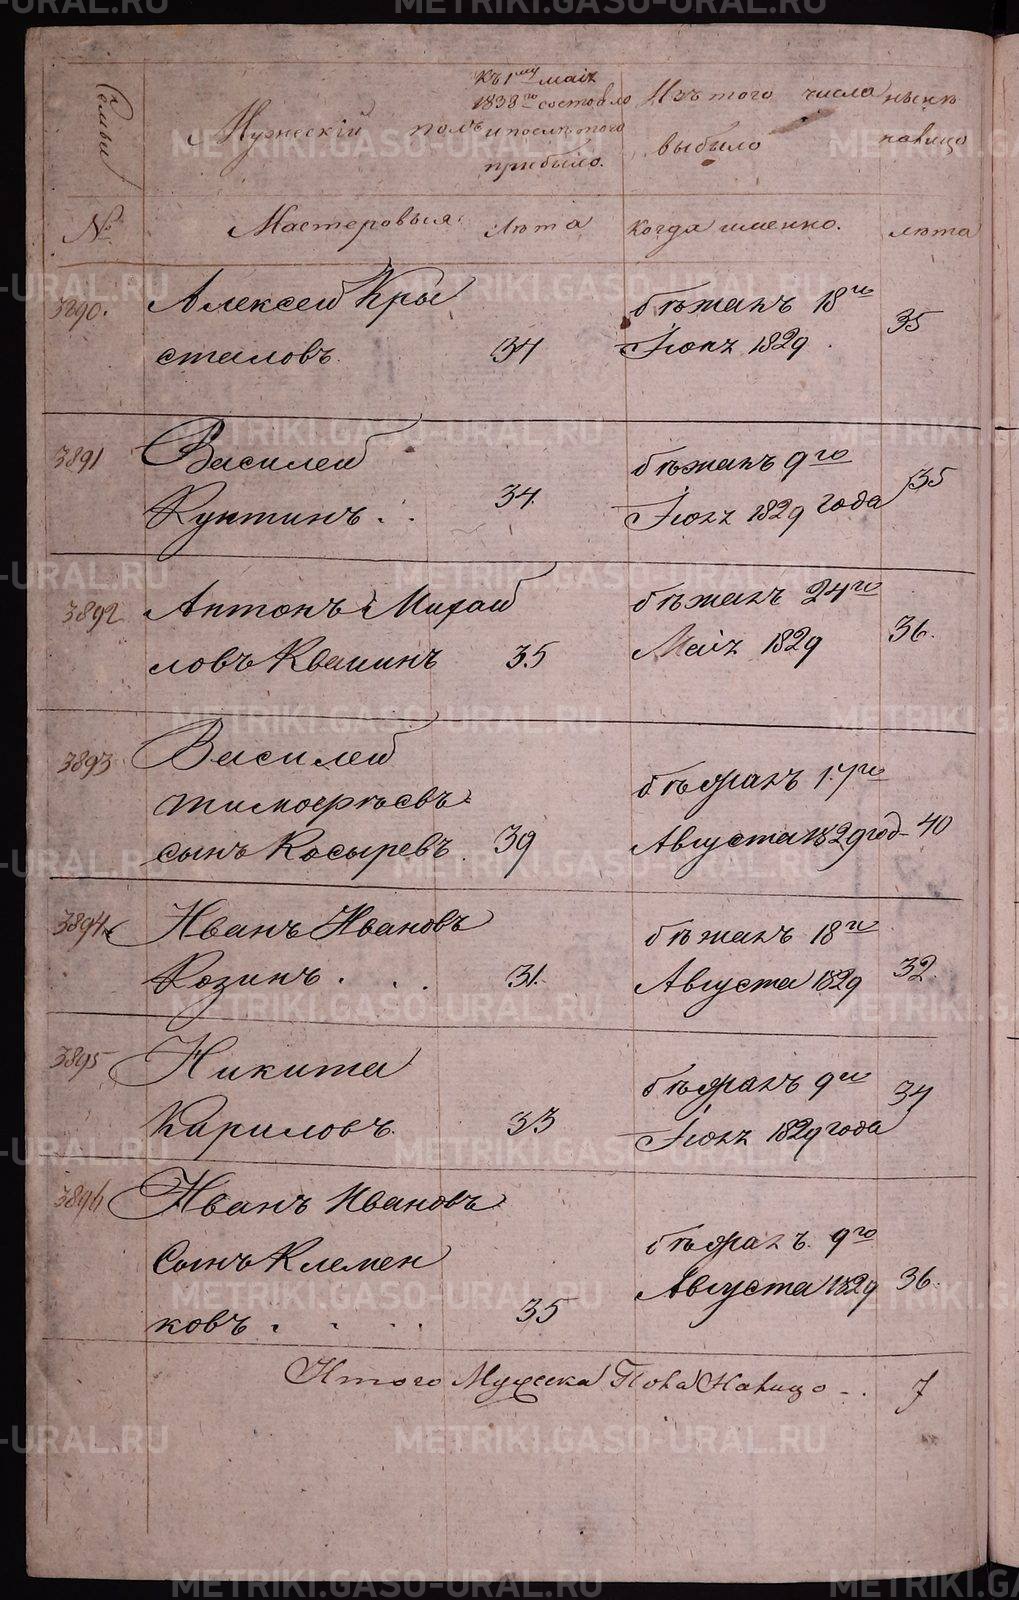 METRIKI.GASO-URAL.RU
Семьи
Мужескій полъ
Къ 1му маія
1838го состояло
и послѣ того
прибыло.
Изъ того числа
выбыло
нынѣ
налицо
№
Мастеровыя
лѣта
когда именно.
лѣта
3890.
Алексей Кры
сталовъ
34
бѣжалъ 18го
Іюля 1829
35
3891
Василей
34.
бѣжалъ 9го
Іюля 1829 года
35
3892
Антонъ Михай
ловъ Квашинъ
35
бѣжалъ 24го
Маія 1829
36.
3893
Василей
тимофѣевъ
сынъ Косыревъ
39
бѣжалъ 17го
Августа 1829 год
40
3894
Иванъ Ивановъ
Розинъ
31.
бѣжалъ 18го
Августа 1829
32.
3895
Никита
Кариловъ
33
бѣжалъ 9го
Іюля 1829 года
34
3896
Иванъ Ивановъ
Сынъ Клемен
ковъ
35
бѣжалъ 9го
Августа 1829
36.
Итого Мужеска Пола Налицо
7